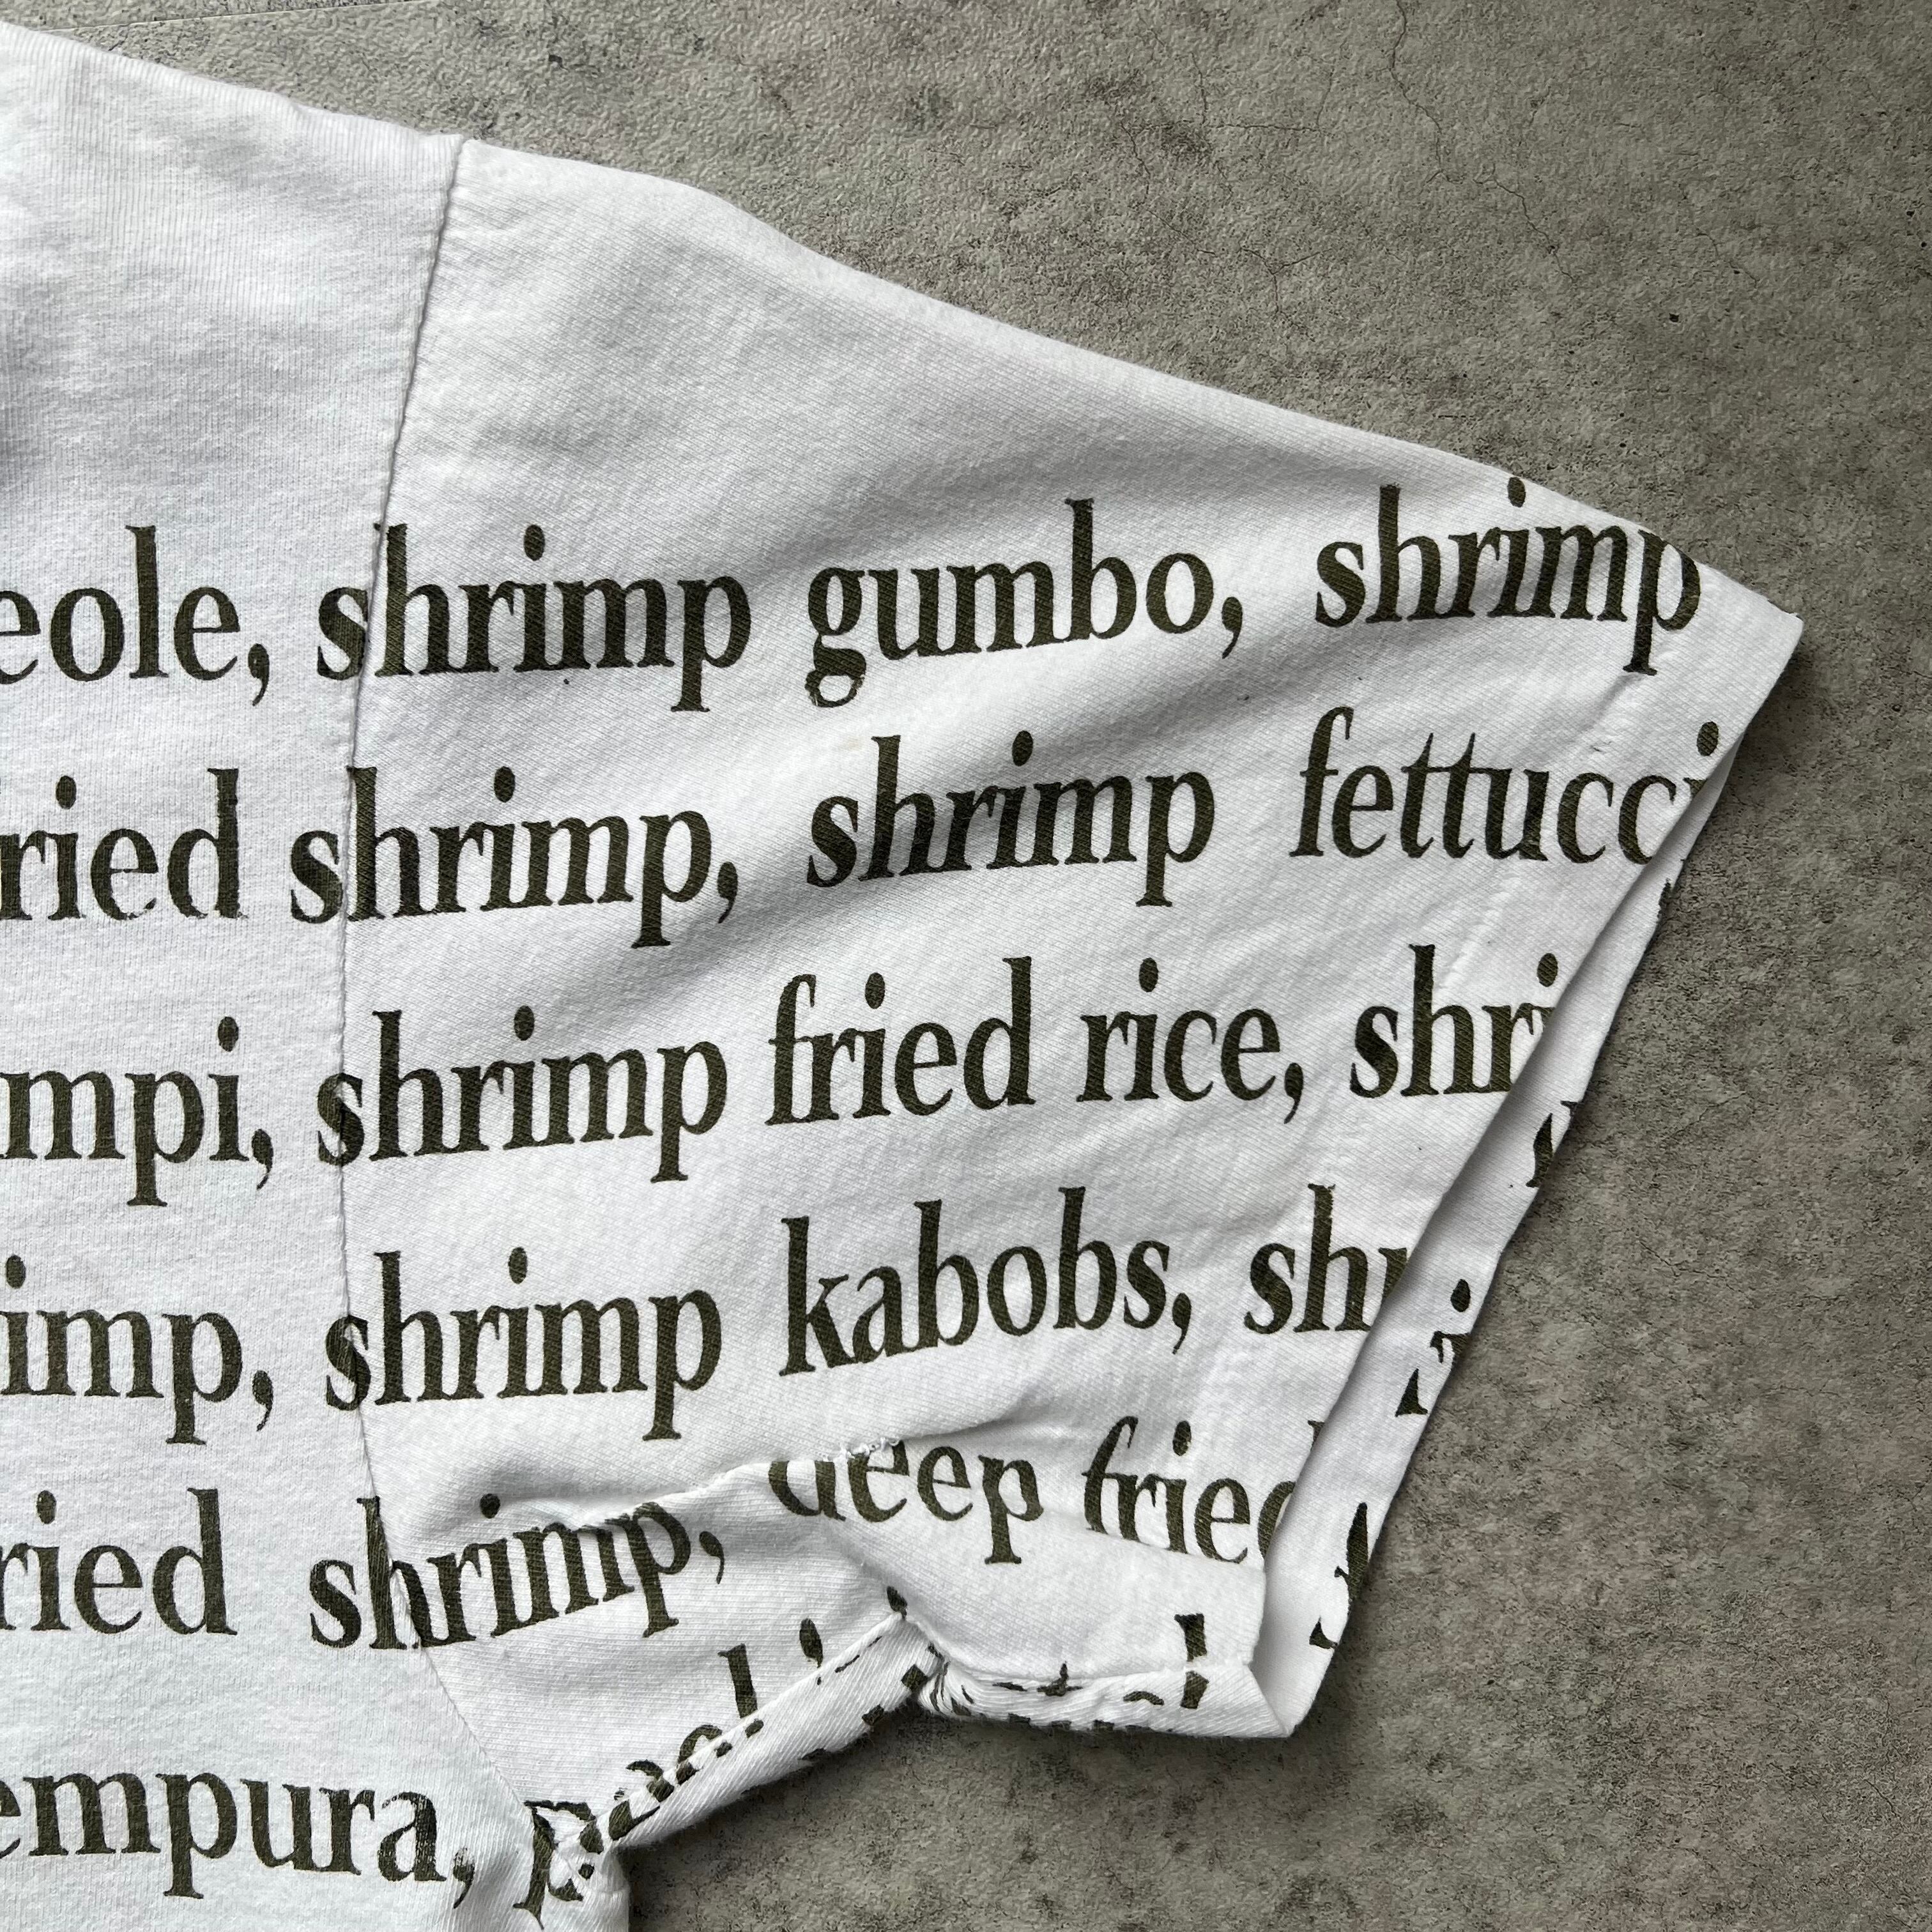 eole, shrimp gumbo, shrimp
ried shrimp, shrimp fettucci
mpi, shrimp fried rice, shri
imp, shrimp kabobs, shr
ried shrimp, deep fried
empura,